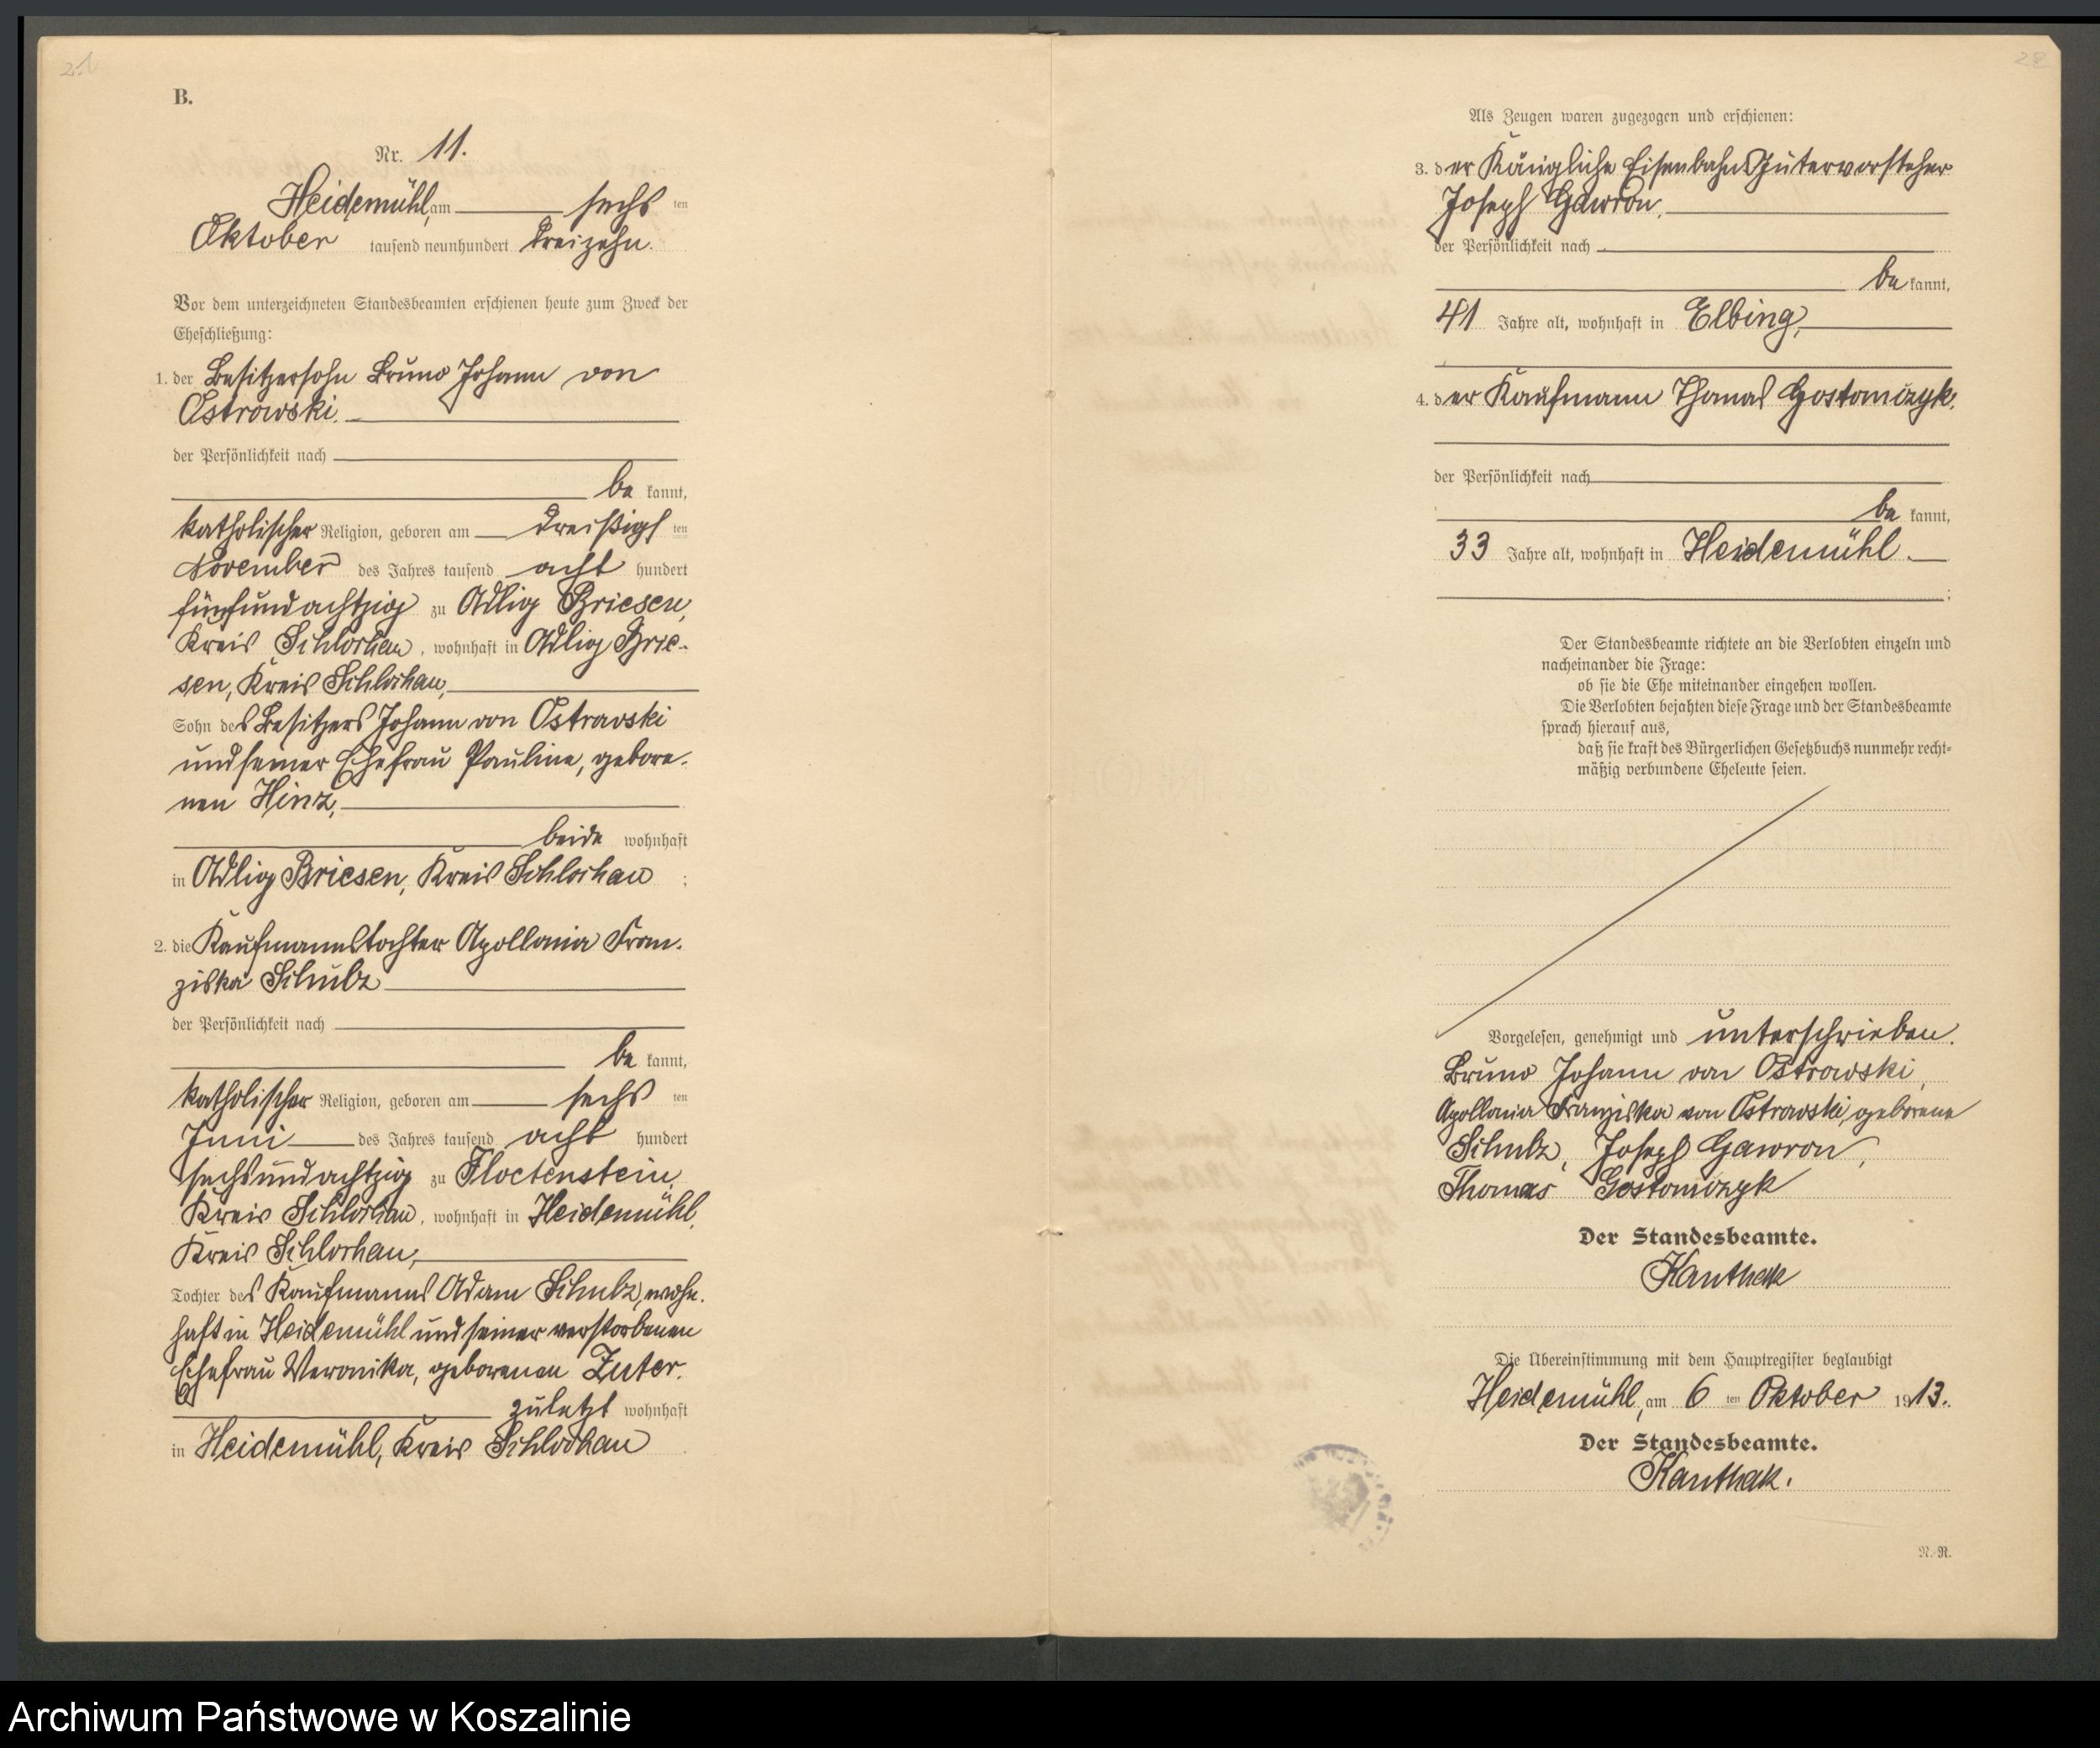 21
B.
Nr. 11.
Heidemühl, am sechs ten
Oktober tausend neunhundert dreizehn.
Vor dem unterzeichneten Standesbeamten erschienen heute zum Zweck der
Eheschließung:
1. der Besitzersohn Bruno Johann von
Ostrowski,
der Persönlichkeit nach
be kannt,
katholischer Religion, geboren am dreißigs ten
November des Jahres tausend acht hundert
fünfundachtzig zu Adlig Briesen,
Kreis Schlochau, wohnhaft in Adlig Brie-
sen, Kreis Schlochau,
Sohn des Besitzers Johann von Ostrowski
und seiner Ehefrau Pauline, gebore-
nen Hinz,
beide wohnhaft
in Adlig Briesen, Kreis Schlochau ;
2. die Kaufmannstochter Apollonia Fran-
ziska Schulz
der Persönlichkeit nach
be kannt,
katholischer Religion, geboren am sechs ten
Juni des Jahres tausend acht hundert
sechsundachtzig zu Floetenstein,
Kreis Schlochau, wohnhaft in Heidemühl,
Kreis Schlochau,
Tochter des Kaufmanns Adam Schulz, wohn-
haft in Heidemühl und seiner verstorbenen
Ehefrau Veronika, geborenen Zuter.
zuletzt wohnhaft
in Heidemühl, Kreis Schlochau
22
Als Zeugen waren zugezogen und erschienen:
3. der Königliche Eisenbahn Gütervorsteher
Joseph Gawron,
der Persönlichkeit nach
be kannt,
41 Jahre alt, wohnhaft in Elbing,
4. der Kaufmann Thomas Gostomczyk,
der Persönlichkeit nach
be kannt,
33 Jahre alt, wohnhaft in Heidemühl.
;
Der Standesbeamte richtete an die Verlobten einzeln und
nacheinander die Frage:
ob sie die Ehe miteinander eingehen wollen.
Die Verlobten bejahten diese Frage und der Standesbeamte
sprach hierauf aus,
daß sie kraft des Bürgerlichen Gesetzbuchs nunmehr recht-
mäßig verbundene Eheleute seien.
Vorgelesen, genehmigt und unterschrieben.
Bruno Johann von Ostrowski,
Apollonia Franziska von Ostrowski, geborene
Schulz, Joseph Gawron,
Thomas Gostomczyk
Der Standesbeamte.
Kanthak
Die Übereinstimmung mit dem Hauptregister beglaubigt
Heidemühl, am 6 ten Oktober 1913.
Der Standesbeamte.
Kanthak.
N. R.
Archiwum Państwowe w Koszalinie